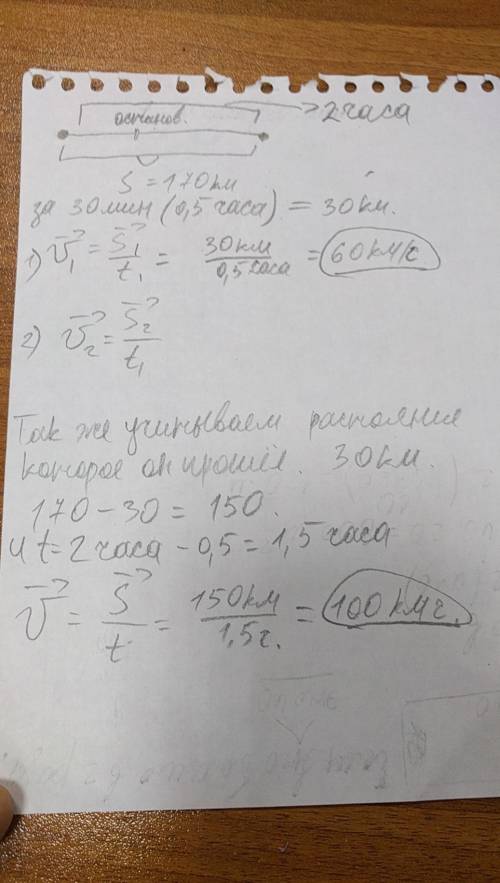 останов. 2 часа
S = 170 км
за 30 мин (0,5 часа) = 30 км.
1) V₁ = S₁/t₁ = 30 км/0,5 часа = 60 км/ч
2) V₂ = S₂/t₁
Так же учитываем растояние
которое он прошёл. 30 км.
170 - 30 = 150.
и t = 2 часа - 0,5 = 1,5 часа
V = S/t = 150 км/1,5 ч. = 100 км ч.